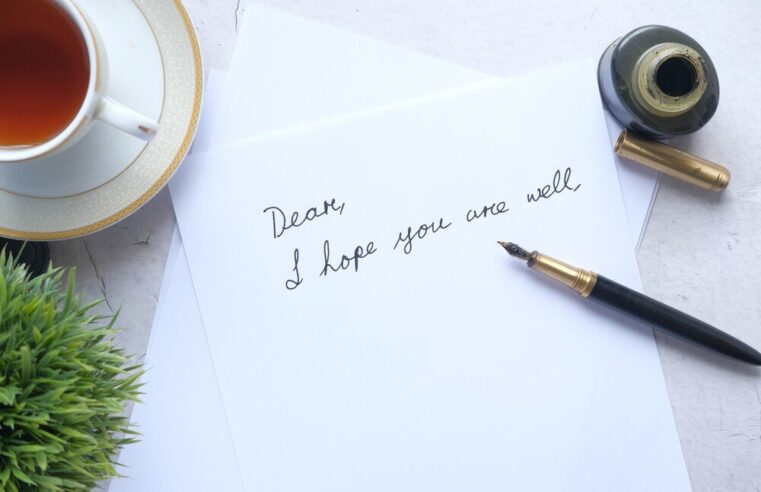 Dear,
I hope you are well,